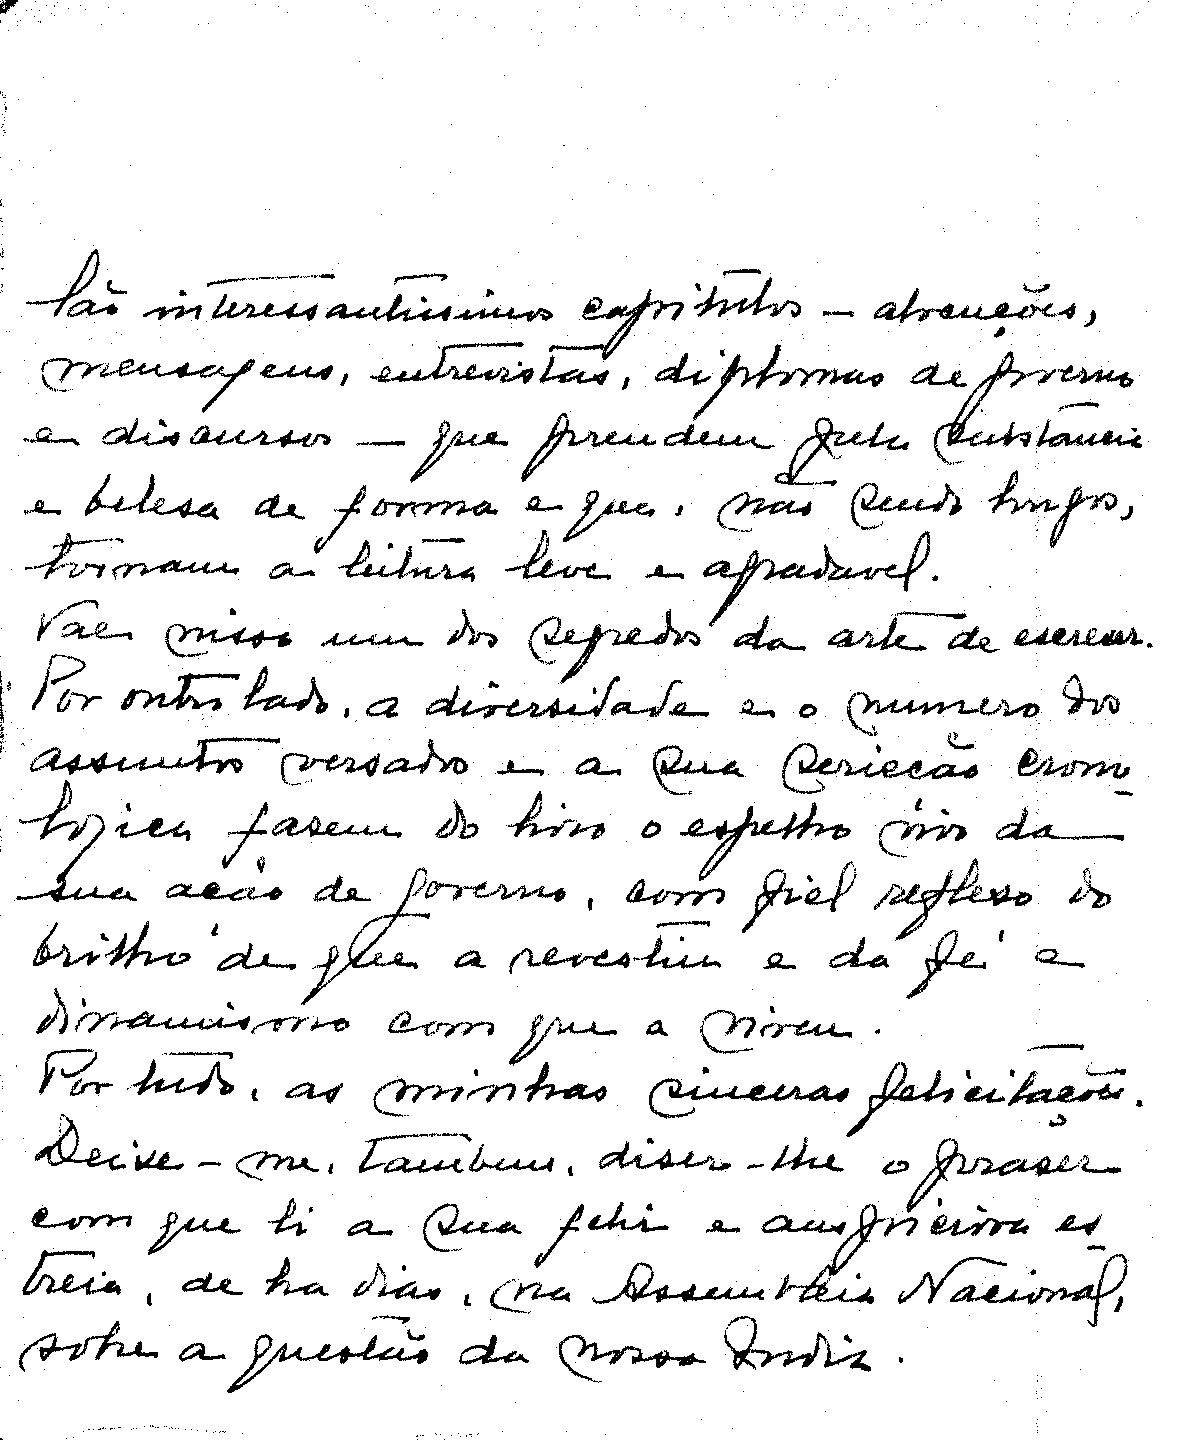 São interessantissimos capitulos – alocuções,
mensagens, entrevistas, diplomas de governo
e discursos – que prendem pela substancia
e belesa de forma e que, não sendo longos,
tornam a leitura leve e agradavel.
Vae nisso um dos segredos da arte de escrever.
Por outro lado, a diversidade e o numero dos
assuntos versados e a sua seriação crono-
logica fasem do livro o espelho vivo da
sua ação de governo, com fiel reflexo do
brilho de que a revestiu e da fé e
dinamismo com que a viveu.
Por tudo, as minhas sinceras felicitações.
Deixe-me, tambem, diser-lhe o praser
com que li a sua feliz e auspiciosa es-
treia, de ha dias, na Assembleia Nacional,
sobre a questão da nossa India.